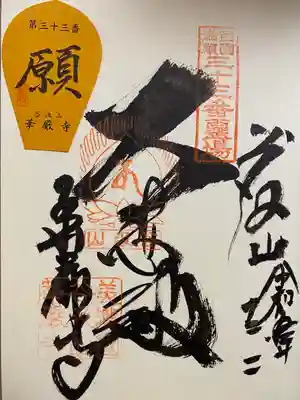 第三十三番
願
谷汲山
華厳寺
西国
満願
三十三番霊場
谷汲山
大悲殿
華厳寺